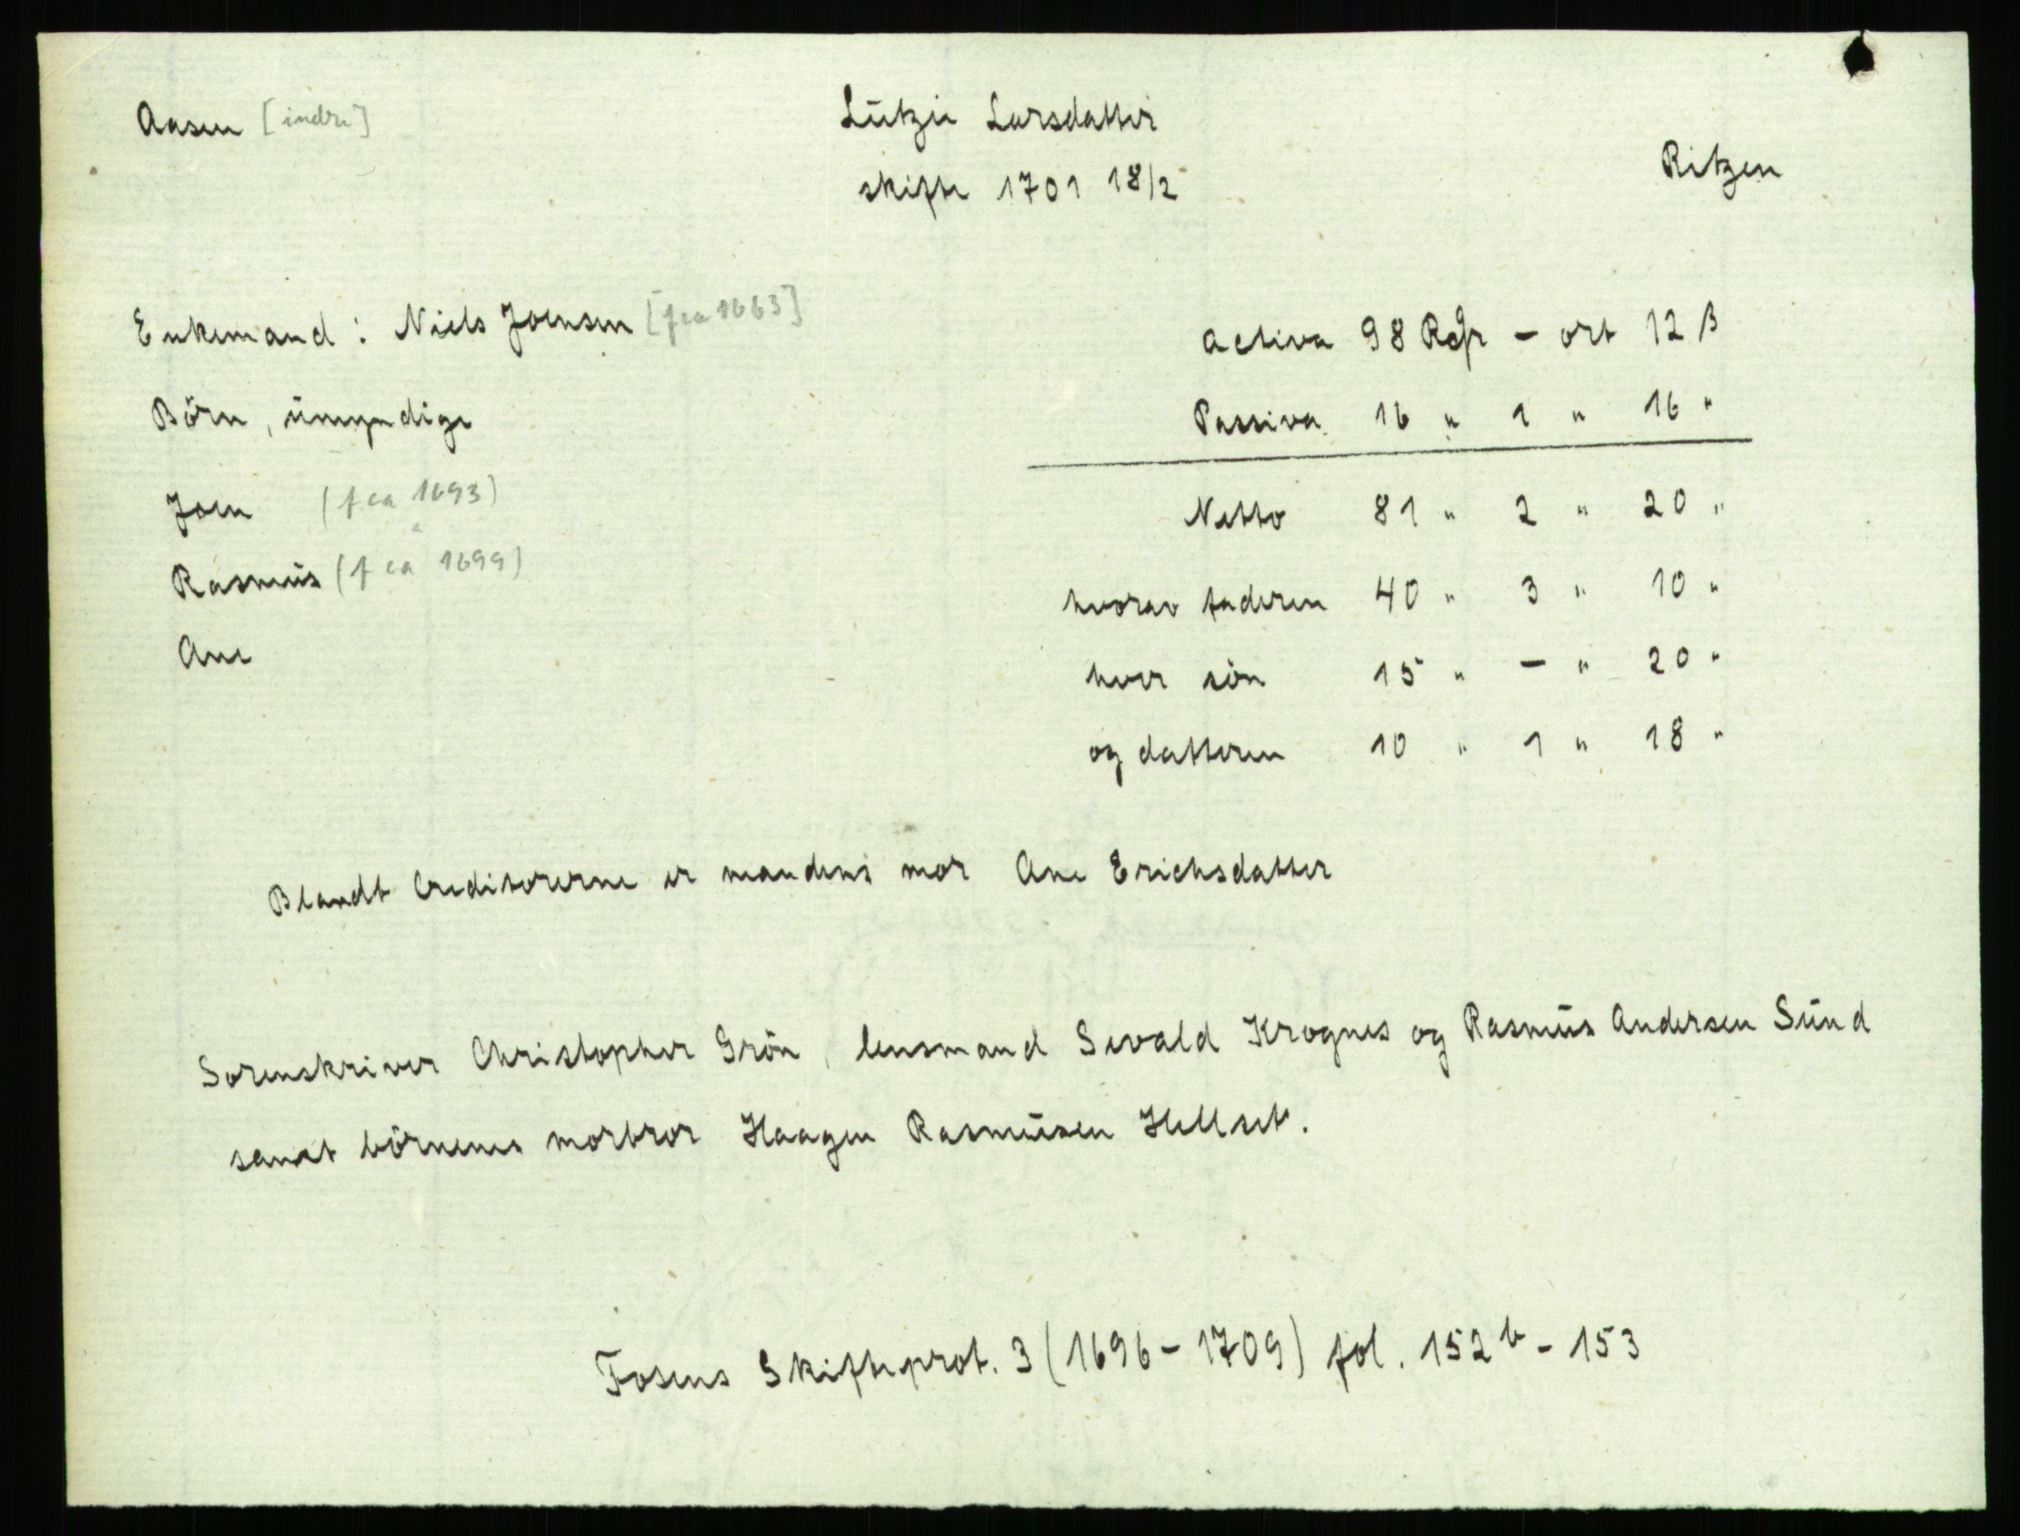 Aasen [indre]
Lützie Larsdatter
skifte 1701 18/2
Ritzen
Enkemand : Niels Joensen [f ca 1663]
Börn, ümyndige
Joen (f ca 1693)
Rasmüs (f ca 1699)
Ane
Activa 98 Rdr – ort 12 ß
Passiva 16 " 1 " 16 "
Netto 81 " 2 " 20 "
hvorav faderen 40 " 3 " 10 "
hver sön 15 " – " 20 "
og datteren 10 " 1 " 18 "
Blandt Creditorerne er mandens mor Ane Erichsdatter
Sorenskriver Christopher Grön, lensmand Sivald Krognes og Rasmüs Andersen Sünd
samt börnenes morbror Haagen Rasmüsen Hellset.
Fosens Skifteprot. 3 (1696 – 1709) fol. 152 b – 153